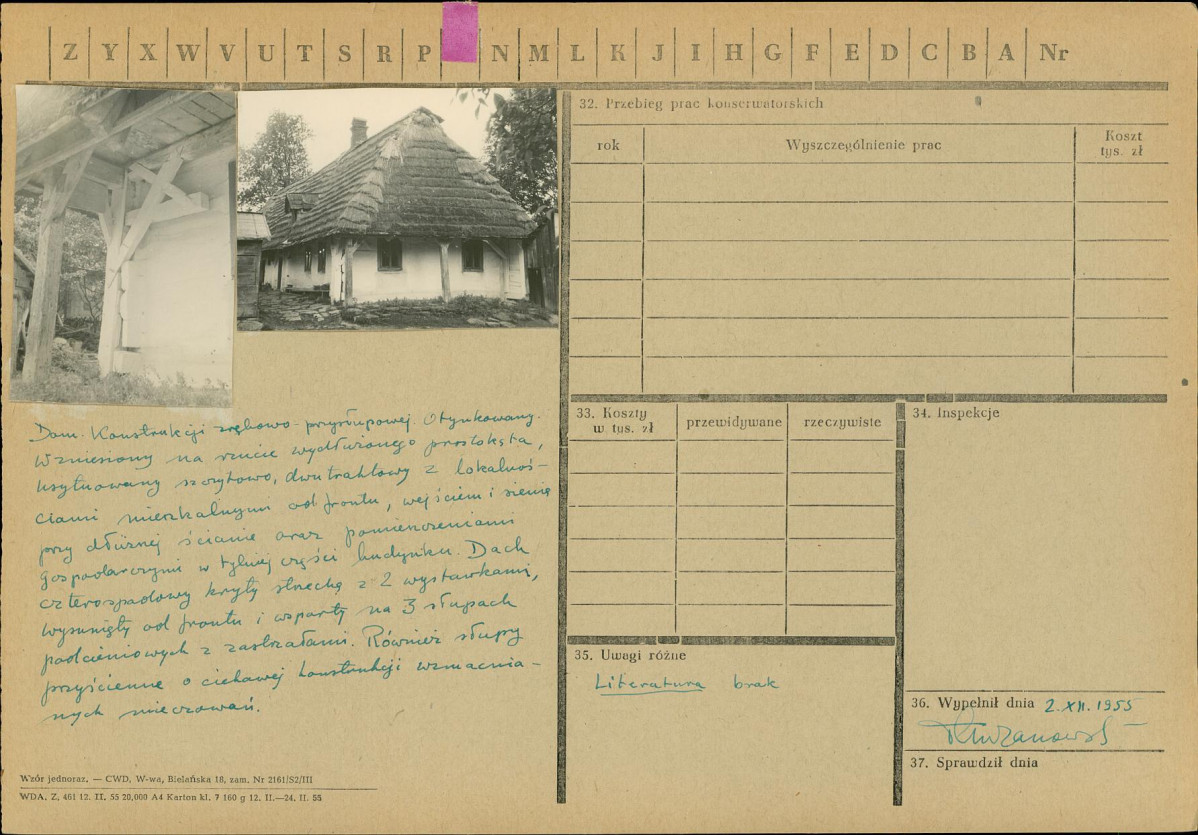 Z Y X W V U T S R P N M L K J I H G F E D C B A Nr
Dom. Konstrukcji zrębowo-przysłupowej. Otynkowany.
Wzniesiony na rzucie wydłużonego prostokąta,
usytuowany szczytowo, dwutraktowy z lokalnoś-
ciami mieszkalnymi od frontu, wejściem i sienią
przy dłuższej ścianie oraz pomieszczeniami
gospodarczymi w tylnej części budynku. Dach
czterospadowy kryty strzechą z 2 wystawkami,
wysunięty od frontu i wsparty na 3 słupach
podcieniowych z zastrzałami. Również słupy
przyścienne o ciekawej konstrukcji wzmacnia-
nych mieczowań.
Wzór jednoraz. — CWD, W-wa, Bielańska 18, zam. Nr 2161/S2/III
WDA. Z. 461 12. II. 55 20,000 A4 Karton kl. 7 160 g 12. II.—24. II. 55
32. Przebieg prac konserwatorskich
rok Wyszczególnienie prac Koszt
tys. zł
33. Koszty
w tys. zł
przewidywane rzeczywiste
34. Inspekcje
35. Uwagi różne
Literatura brak
36. Wypełnił dnia 2.XII.1955
37. Sprawdził dnia